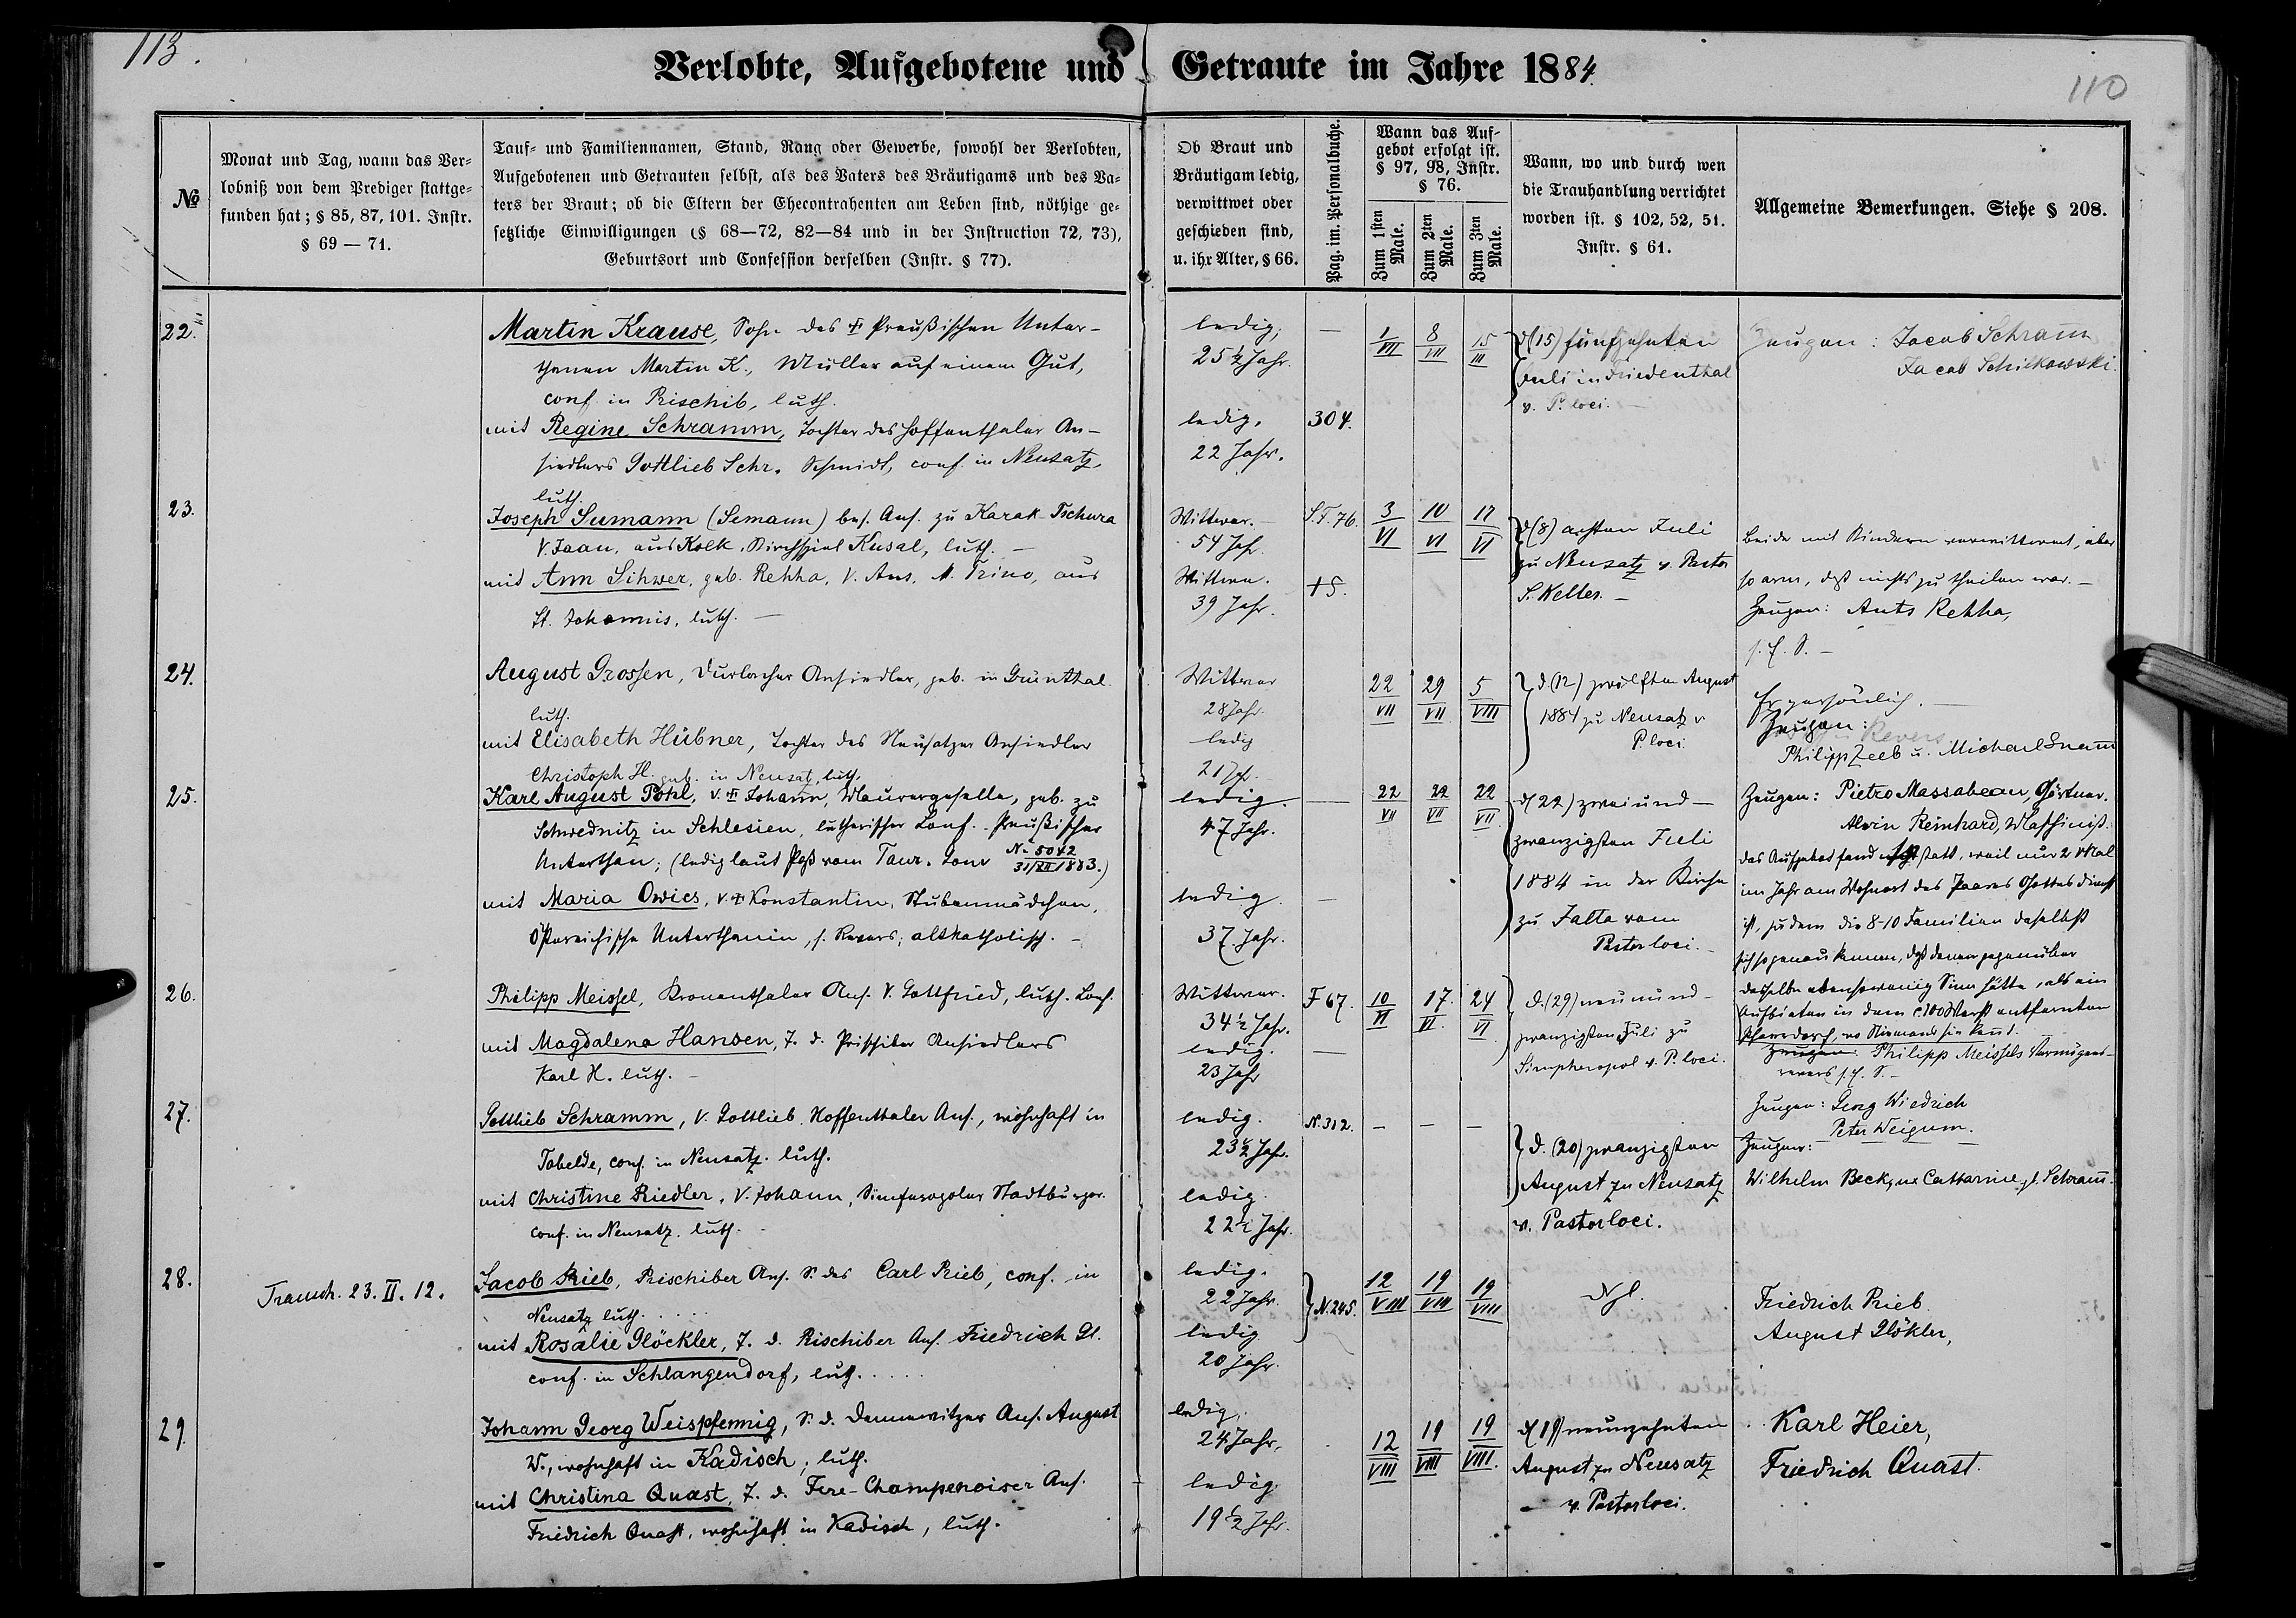 113.
110
Verlobte, Aufgebotene und Getraute im Jahre 1884
№
Monat und Tag, wann das Ver-
lobniß von dem Prediger stattge-
funden hat; § 85, 87, 101. Instr.
§ 69 — 71.
Tauf- und Familiennamen, Stand, Rang oder Gewerbe, sowohl der Verlobten,
Aufgebotenen und Getrauten selbst, als des Vaters des Bräutigams und des Va-
ters der Braut; ob die Eltern der Ehecontrahenten am Leben sind, nöthige ge-
setzliche Einwilligungen (§ 68—72, 82—84 und in der Instruction 72, 73),
Geburtsort und Confession derselben (Instr. § 77).
Ob Braut und
Bräutigam ledig,
verwittwet oder
geschieden sind,
u. ihr Alter, § 66.
Pag. im. Personalbuche.
Wann das Auf-
gebot erfolgt ist.
§ 97, 98, Instr.
§ 76.
Zum 1sten Male.
Zum 2ten Male.
Zum 3ten Male.
Wann, wo und durch wen
die Trauhandlung verrichtet
worden ist. § 102, 52, 51.
Instr. § 61.
Allgemeine Bemerkungen. Siehe § 208.
22.
Martin Krause, Sohn des Preußischen Unter-
thanen Martin K., Müller auf einem Gut,
conf in Prischib, luth.
mit Regine Schramm, Tochter des Hoffenthaler An-
siedlers Gottlieb Schr. Schmidt, conf. in Neusatz,
luth.
ledig,
25 ½ Jahr.
ledig.
22 Jahr.
—
304.
1/VII
8/VII
15
d (15) fünfzehnten
Juli in Friedenthal
v. P. loci. —
Zeugen: Jacob Schram̄
Jacob Schikowski.
23.
Joseph Sumann (Semann) bes. Ans. zu Karak-Tschura
V. Jaan, aus Kolk, Kirchspiel Kusal, luth. —
mit Ann Sihwer, geb. Rehha, V. Ans, M. Trino, aus
St. Johannis, luth. —
Wittwer. —
54 Jahr.
Wittwe.
39 Jahr.
S.T. 76.
3/VI
10/VI
17/VI
d (8) achten Juli
zu Neusatz v. Pastor
S. Keller. —
Beide mit Kindern verwittwet, aber
so arm, daß nichts zu theilen war. —
Zeugen: Ants Rehha,
24.
August Grossen, Durlacher Ansiedler, geb. in Grünthal
luth.
mit Elisabeth Hübner, Tochter des Neusatzer Ansiedler
Christoph H. geb. in Neusatz, luth.
Wittwer
28 Jahr.
ledig
21 J.
22/VII
29/VII
5/VIII
d (12) zwölften August
1884 zu Neusatz v
P. loci
Er persönlich.
Zeugen:
Revers
Philipp Zeeb u. Michael
25.
Karl August Pohl, V. Johann, Maurergeselle, geb. zu
Schwednitz in Schlesien, lutherischer Conf. Preußischer
Unterthan; (ledig laut Paß vom Taur. Gouv № 5042 31/XII 1883.)
mit Maria Owics, V. Konstantin, Stubenmädchen,
Östereichische Unterthanin, s. Revers; altkatholisch. —
ledig.
47 Jahr.
ledig.
37 Jahr.
—
—
22/VII
22/VII
22/VII
d (22) zweiund-
zwanzigsten Juli
1884 in der Kirche
zu Jalta vom
Pastor loci.
Zeugen: Pietro Massabeau, Gärtner.
Alwin Reinhard, Maschinist.
das Aufgebot fand nicht statt, weil nur 2 Mal
im Jahr am Wohnort des Paares Gottesdienst
ist, zudem die 8-10 Familien daselbst
sich so genau kennen, daß denen gegenüber
dasselbe ebensowenig Sinn hätte, als ein
Aufbieten in dem c 100 Werst entfernten
Pfarrdorf, wo Niemand sie kennt.
26.
Philipp Meissel, Kronenthaler Ans. V. Gottfried, luth. Conf.
mit Magdalena Hansen, T. d. Prischiber Ansiedlers
Karl H. luth. —
Wittwer.
34 ½ Jahr.
ledig.
23 Jahr
F 67.
—
10/VI
17/VI
24/VI
d. (29) neunund-
zwanzigsten Juli zu
Simpheropol v. P. loci.
Zeugen: Philipp Meissels Vermögens-
revers
Zeugen: Georg Wiedrich
Peter Weigum.
27.
Gottlieb Schramm, V. Gottlieb, Hoffenthaler Ans., wohnhaft in
Tabelde, conf. in Neusatz. luth.
mit Christine Riedler, V. Johann, Simferopoler Stadtbürger.
conf. in Neusatz. luth. —
ledig.
23 ½ Jahr.
ledig.
22 ½ Jahr.
N. 312.
—
—
—
d. (20) zwanzigsten
August zu Neusatz
v. Pastor loci.
Zeugen:
Wilhelm Beck, Catharine Schram̄.
28.
23. II. 12.
Jacob Prieb, Prischiber Ans. S. des Carl Prieb, conf. in
Neusatz luth.
mit Rosalie Glöckler, T. d. Prischiber Ans. Friedrich Gl.
conf. in Schlangendorf, luth.
ledig.
22 Jahr.
ledig.
20 Jahr.
N. 245.
12/VIII
19/VIII
19/VIII
Friedrich Prieb.
August Glökler,
29.
Johann Georg Weispfennig, S. d. Dennewitzer Ans. August
W., wohnhaft in Kadisch, luth.
mit Christina Quast, T. d. Fere-Champenoiser Ans.
Friedrich Quast, wohnhaft in Kadisch, luth.
ledig,
24 Jahr,
ledig.
19 ½ Jahr.
12/VIII
19/VIII
19/VIII
d (19) neunzehnten
August zu Neusatz
v. Pastor loci.
Karl Heier,
Friedrich Quast.